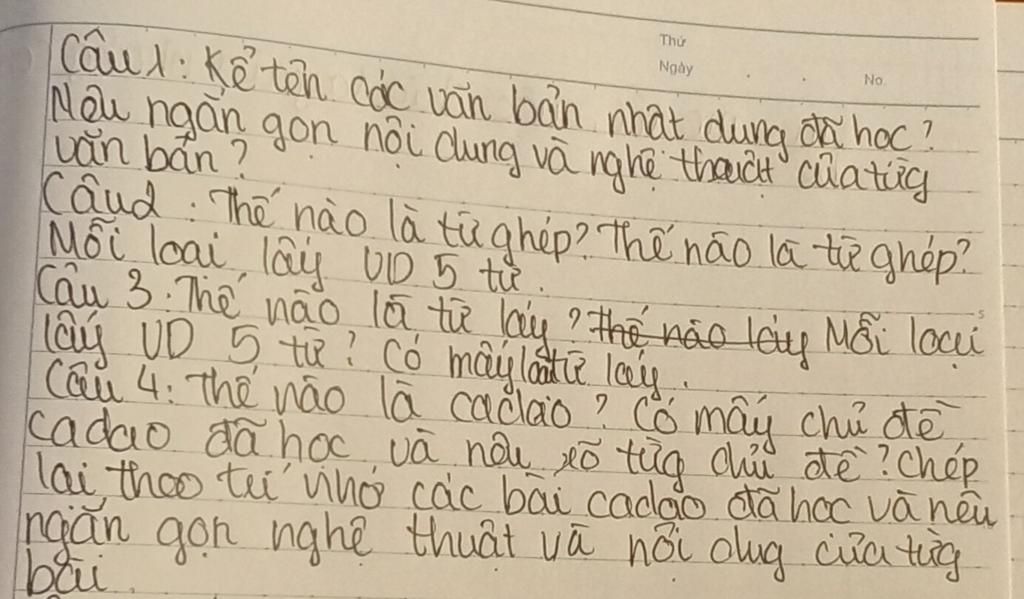 Thứ
Ngày . . No.
Câu 1: Kể tên các văn bản nhật dụng đã học?
Nêu ngắn gọn nội dung và nghệ thuật của từg
văn bản?
Câu 2: Thế nào là từ ghép? Thế nào là từ ghép?
Mỗi loại lấy VD 5 từ.
Câu 3: Thế nào là từ láy? thế nào láy Mỗi loại
lấy VD 5 từ? Có mấy loại từ láy.
Câu 4: Thế nào là ca dao? Có mấy chủ đề
ca dao đã học và nêu rõ từg chủ đề? Chép
lại theo trí nhớ các bài ca dao đã học và nêu
ngắn gọn nghệ thuật và nội dug của từg
bài.